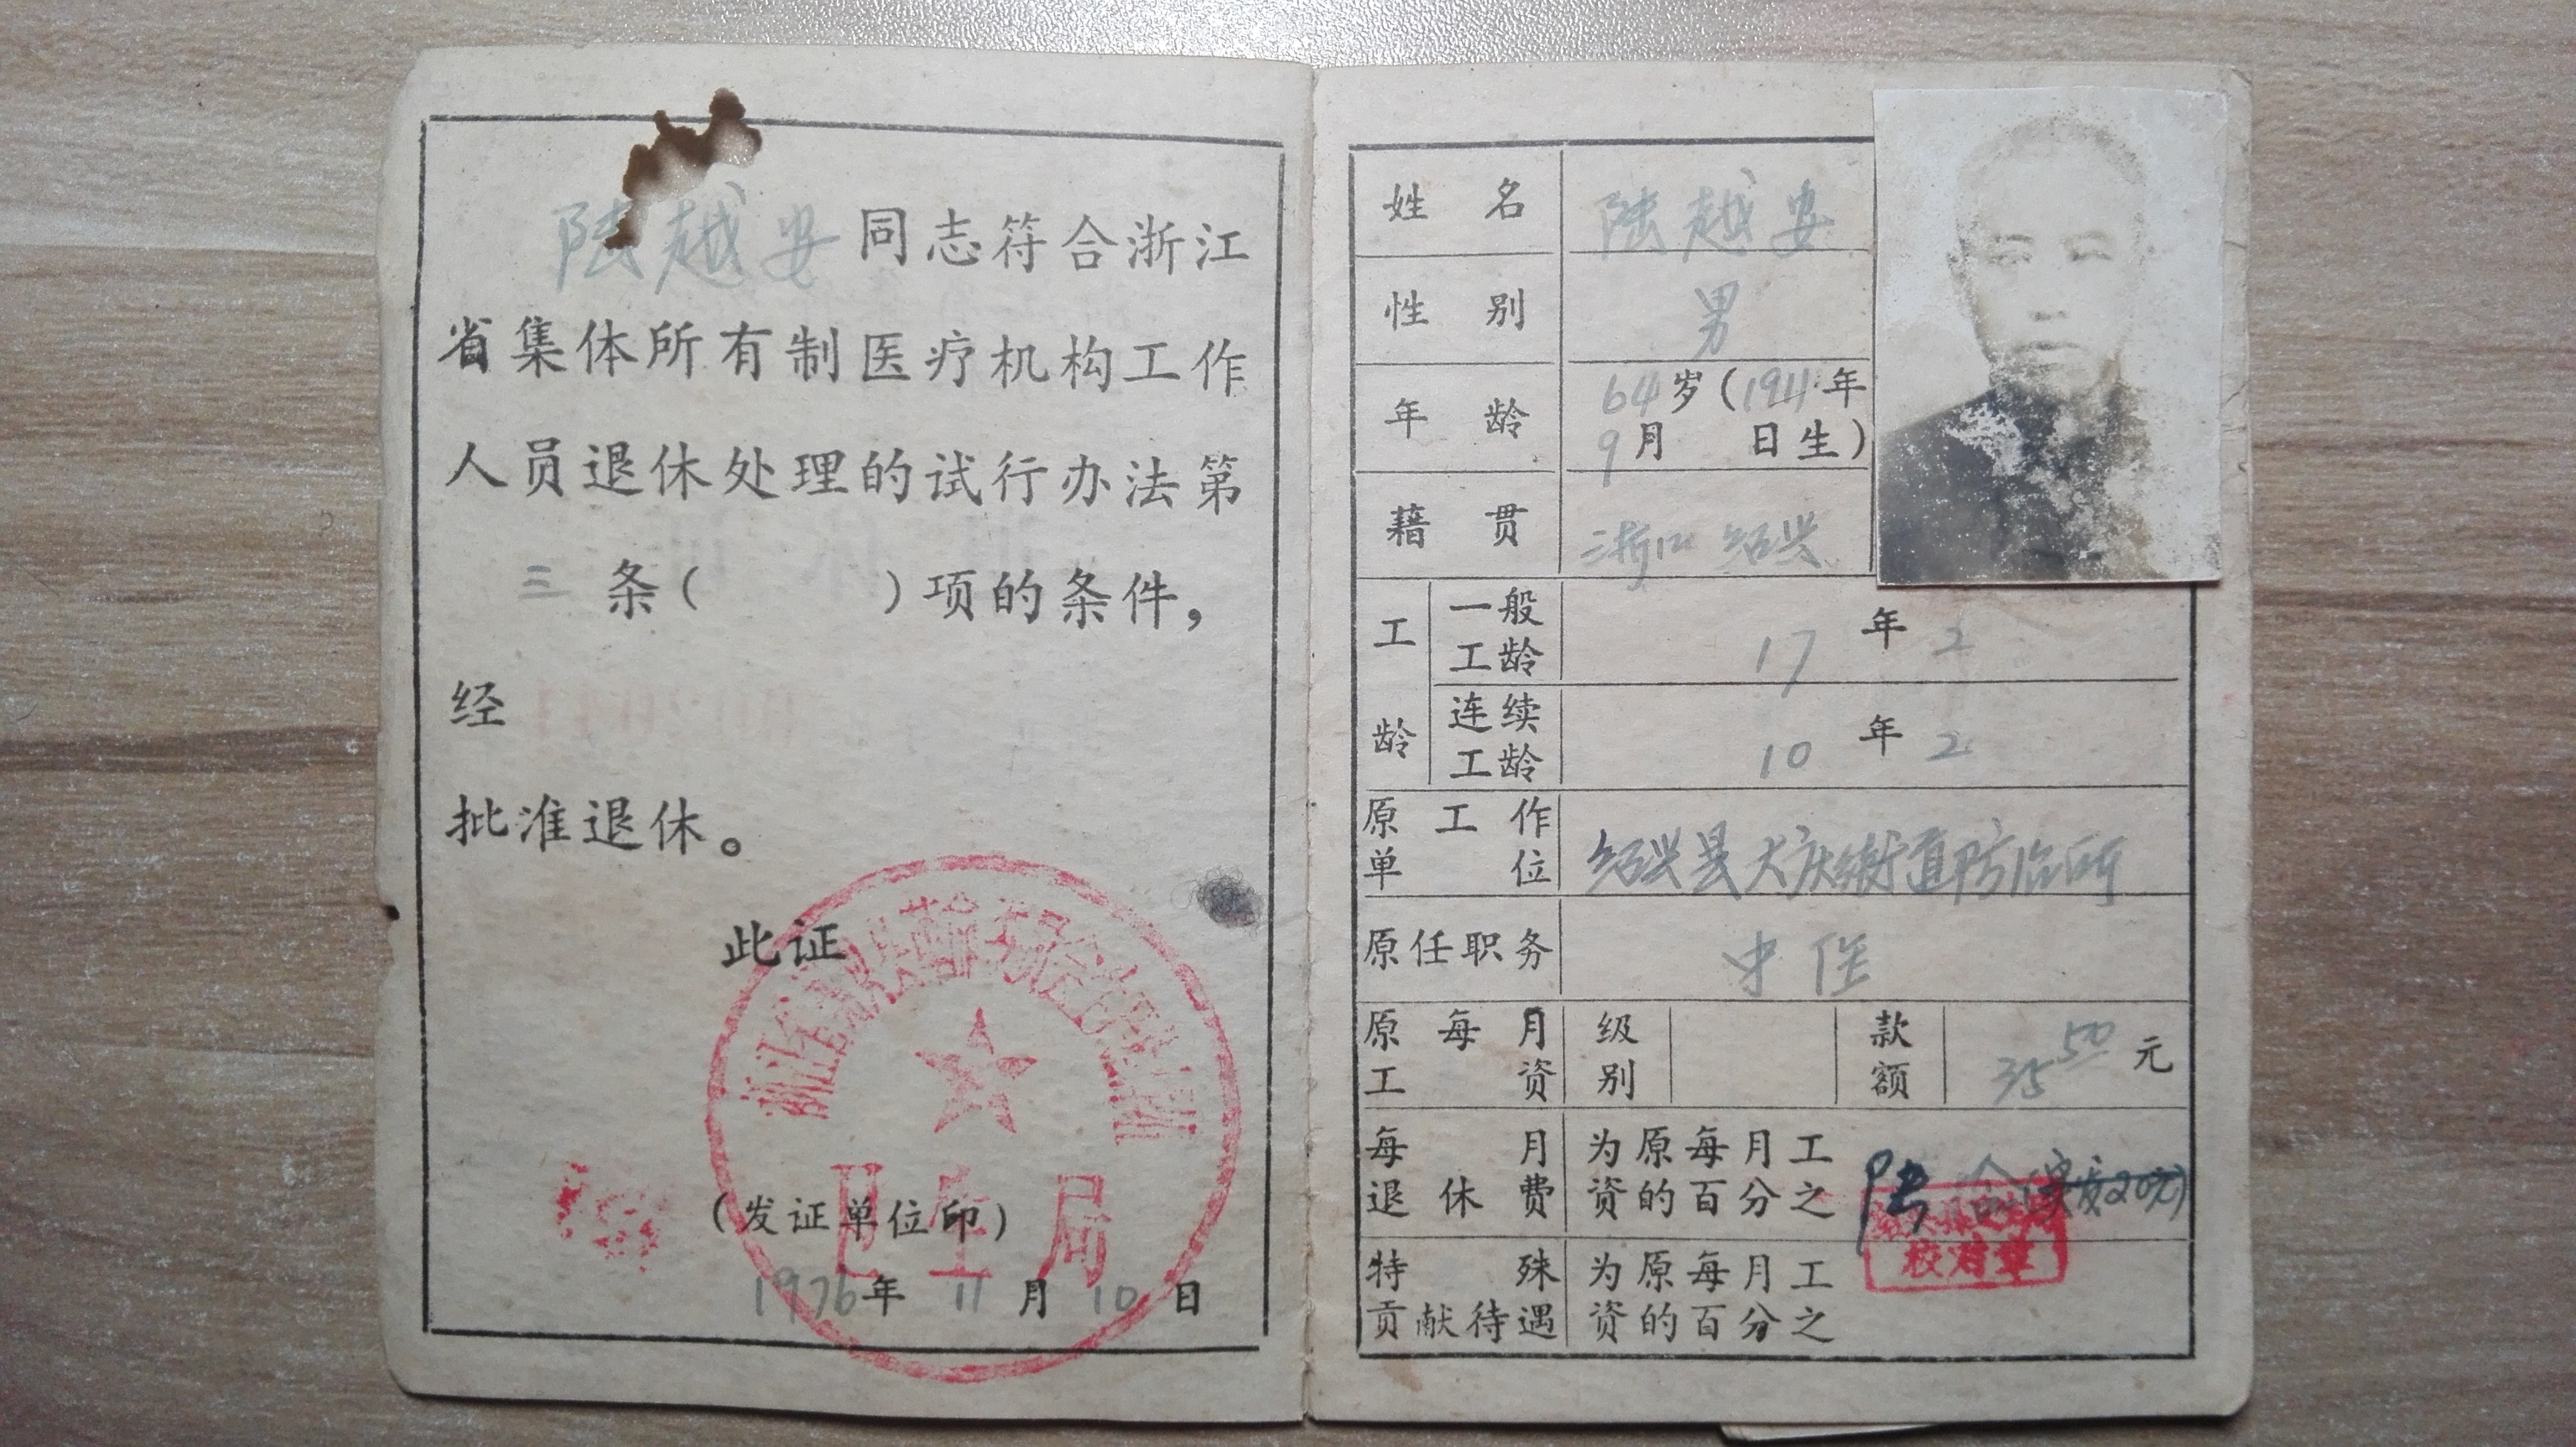 陆越安同志符合浙江
省集体所有制医疗机构工作
人员退休处理的试行办法第
三条( )项的条件,
经
批准退休。
此证
卫生局
(发证单位印)
1976年11月10日
姓名 陆越安
性别 男
年龄 64岁(1911年
9月 日生)
藉贯 浙江绍兴
工龄 一般工龄 17年2
连续工龄 10年2
原工作单位 绍兴县大庆街道防治所
原任职务 中医
原每月工资 级别 款额 35.50元
每月退休费 为原每月工资的百分之 陆 (实发20元)
校对章
特殊贡献待遇 为原每月工资的百分之